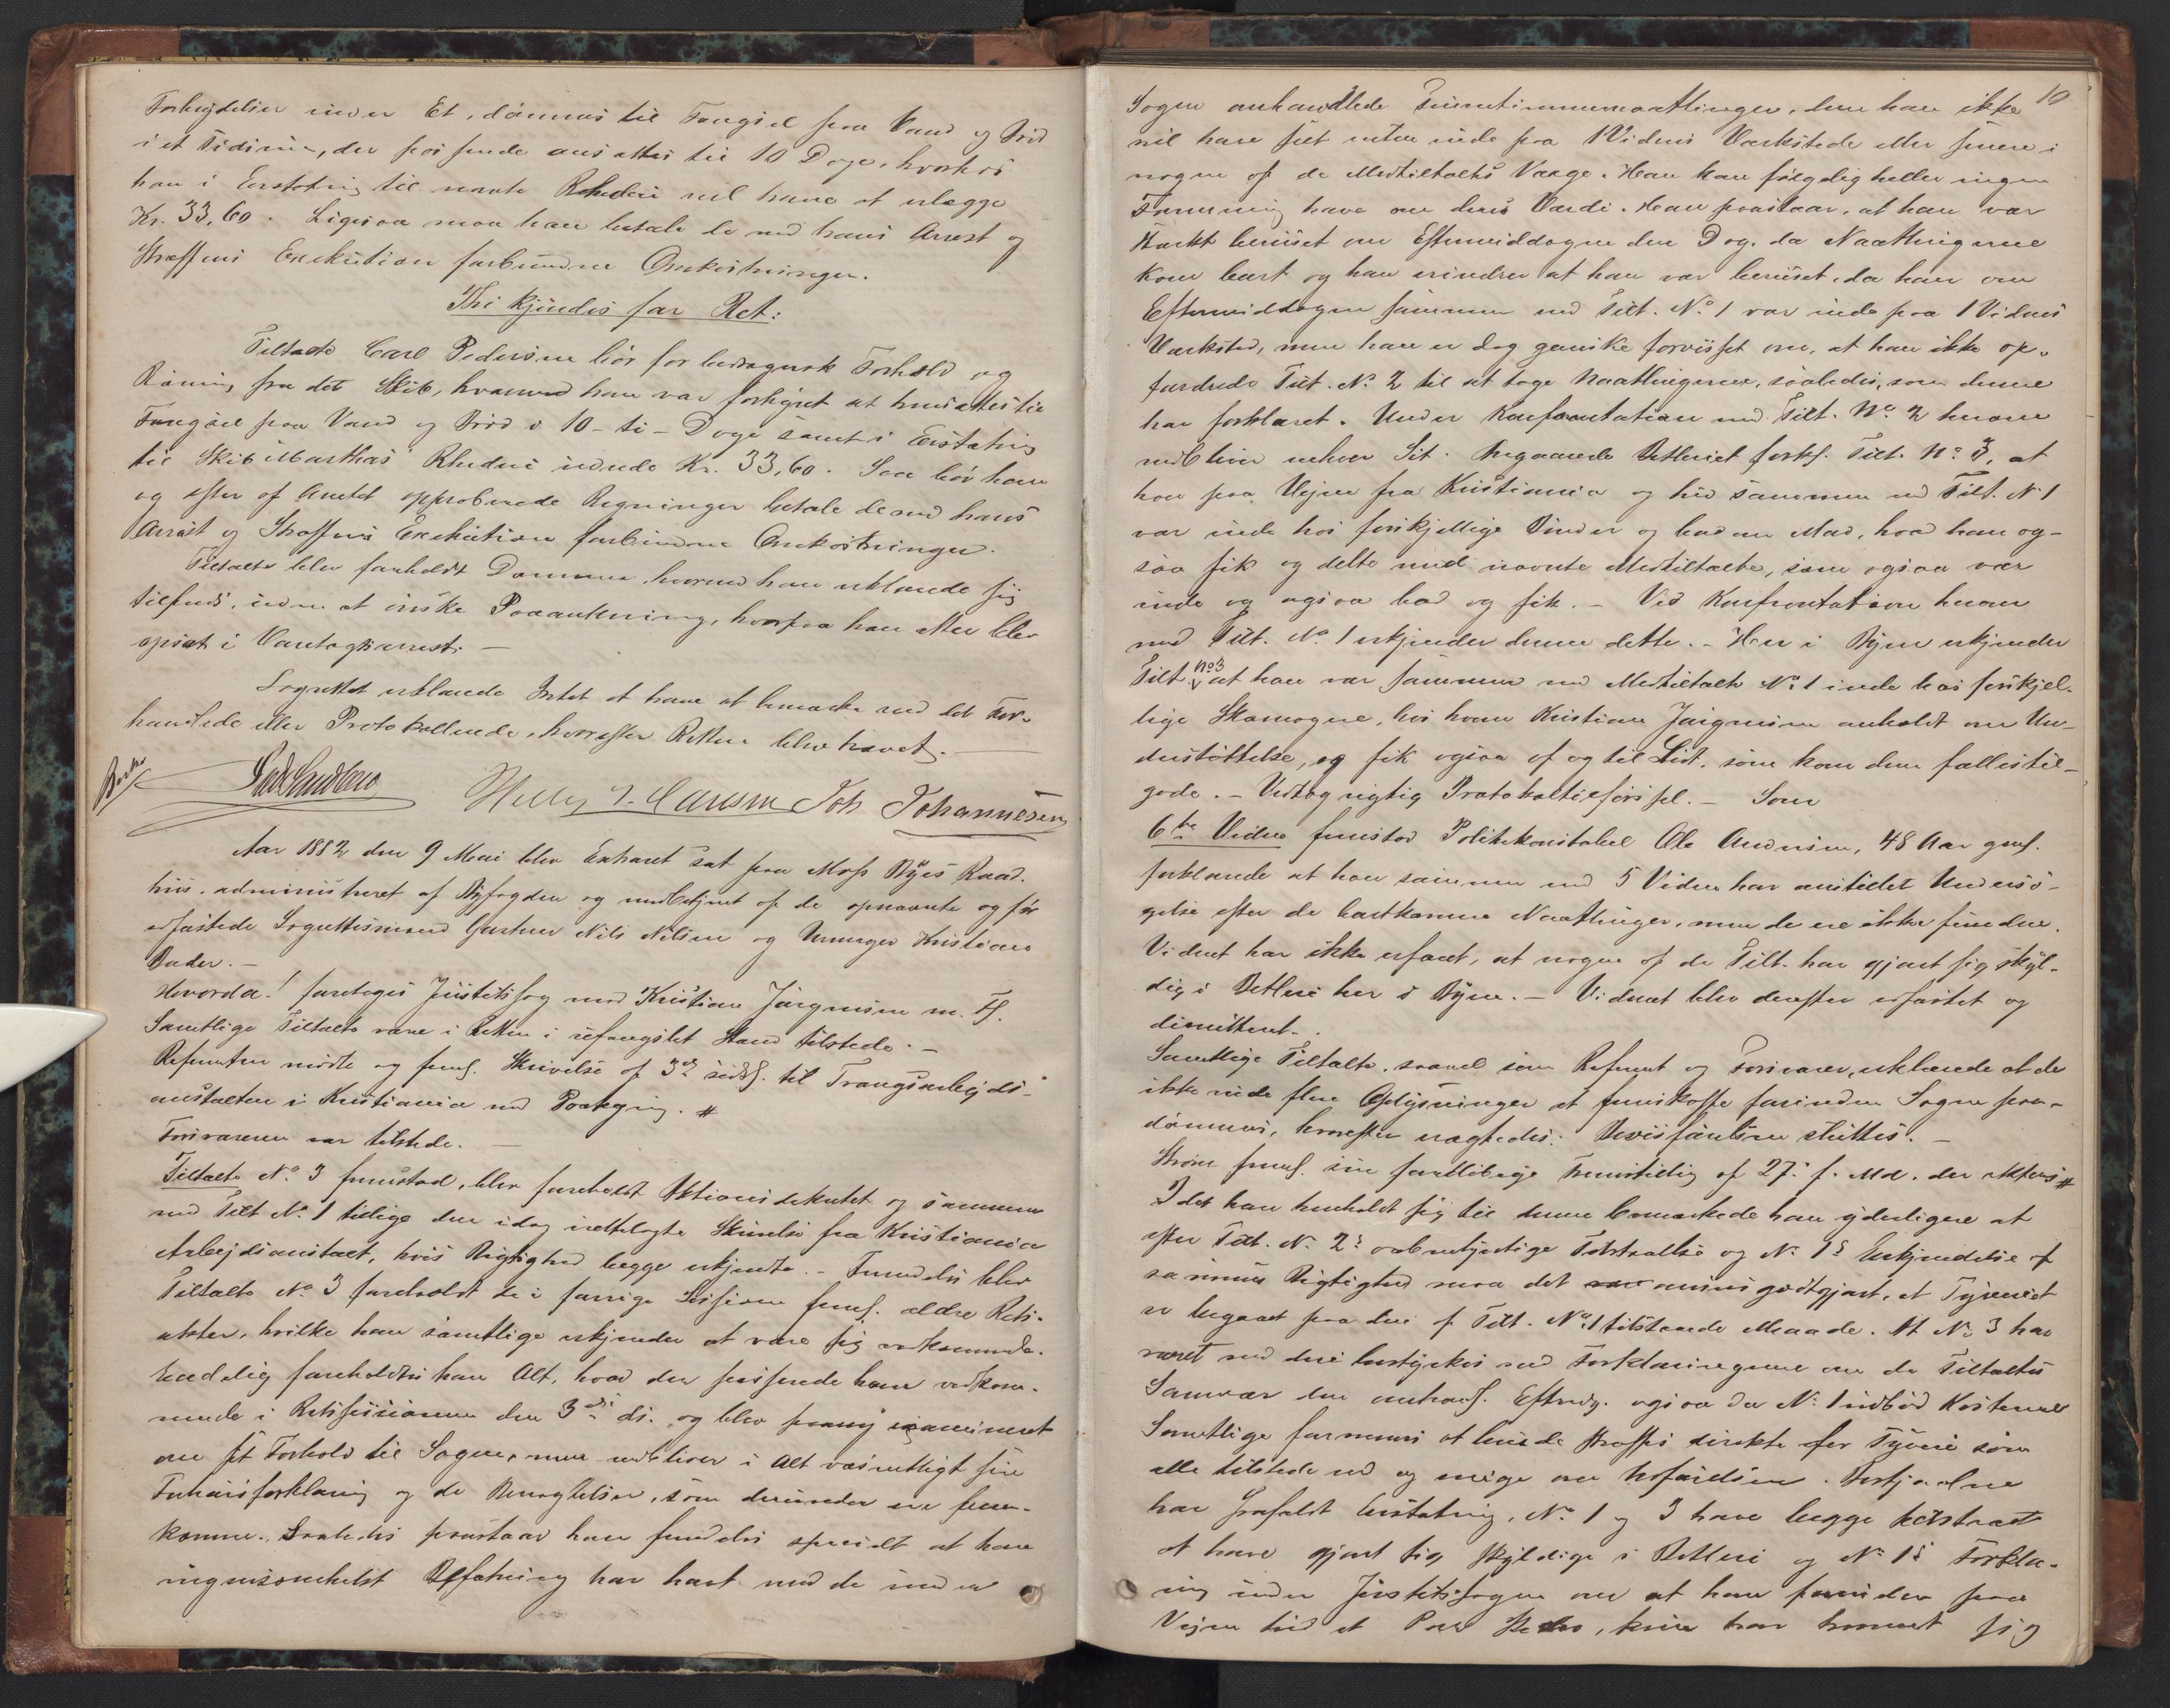 Forbrydelser under Et, dømmes til Fængsel paa Vand og Brød
i et Tidsrum, der passende ansættes til 10 Dage, hvorhos
han i Erstatning til nævnte Rhederi vil have at udlægge
Kr. 33,60. Ligesaa maa han betale de med hans Arrest og
Straffens Exekution forbundne Omkostninger.
Thi kjendes for Ret:
Tiltalte Carl Pedersen bør for bedragersk Forhold og
Rømning fra det Skib, hvormed han var forhyret at hensættes til
Fængsel paa Vand og Brød i 10 - ti - Dage samt i Erstatning
til Skib Marthas Rhederi udrede Kr. 33,60. Saa bør han
og efter af Amtet approberede Regninger betale de med hans
Arrest og Straffens Exekution forbundne Omkostninger.
Tiltalte blev foreholdt Dommen, hvormed han erklærede sig
tilfreds, uden at ønske Paaankning, hvorpaa han atter blev
opsat i Varetægtsarrest. -
Lagrettet erklærede Intet at have at bemærke ved det For-
handlede eller Protokollerede, hvorefter Retten blev hævet. -
Helly J. Carlsen Joh Johannesen
Aar 1882 den 9 Mai blev Extraret sat paa Moss Byes Raad-
hus, administreret af Byfogden og medbetjent af de opnævnte og før
edfæstede Lagrettesmænd Gartner Nils Nilsen og Urmager Kristian
Bader. -
Hvorda! foretoges Justitssag mod Kristian Jørgensen m. Fl.
Samtlige Tiltalte vare i Retten i ufængslet Stand tilstede. -
Referenten mødte og freml. Skrivelse af 3die sidstl. til Tvangsarbejds-
anstalten i Kristiania med Paategning. #
Forsvareren var tilstede. -
Tiltalte No. 3 fremstod, blev foreholdt Aktionsdekretet og sammen
med Tilt No. 1 tillige den idag irettelagte Skrivelse fra Kristiania
Arbejdsanstalt, hvis Rigtighed begge erkjendte. - Fremdeles blev
Tiltalte No. 3 foreholdt de i forrige Session freml. ældre Rets-
akter, hvilke han samtlige erkjender at være sig vedkommende.
Endelig foreholdtes han Alt, hvad der passerede ham vedkom-
mende i Retssessionen den 3die ds. og blev examineret
om sit Forhold til Sagen, men vedbliver i Alt væsentligt sin
Forhørsforklaring og de Benægtelser, som derunder ere frem-
komne. Saaledes paastaar han fremdeles specielt at han
ingensomhelst Befatning har havt med de under
10
Sagen omhandlede Lærredsnaatlinger, dem han ikke
vil have seet uden inde paa 1 Vidnes Værksted eller senere i
nogen af de Medtiltaltes Værge. Han kan følgelig heller ingen
Formening have om deres Værdi. Han paastaar, at han var
stærkt beruset om Eftermiddagen den Dag, da Naatlingerne
kom bort og han erindrer at han var beruset, da han om
Eftermiddagen sammen med Tilt. No. 1 var inde paa 1 Vidnes
Værksted, men han er dog ganske forvisset om, at han ikke op-
fordrede Tilt. No. 2 til at tage Naatlingerne, saaledes, som denne
har forklaret. Under Konfrontation med Tilt. No. 2 herom
vedbliver enhver Sit. Angaaende Betleriet forkl. Tilt. No. 3, at
han paa Vejen fra Kristiania og hid sammen med Tilt. No 1
var inde hos forskjellige Bønder og bad om Mad, hvad han og-
saa fik og delte med nævnte Medtiltalte, som ogsaa var
inde og ogsaa bad og fik. - Ved Konfrontation herom
med Tilt. No. 1 erkjender denne dette. - Her i Byen erkjender
Tilt. No 3 at han var sammen med Medtiltalte No. 1 inde hos forskjel-
lige Skomagere, hos hvem Kristian Jørgensen anholdt om Un-
derstøttelse, og fik ogsaa af og til Lidt, som kom dem fælles til-
gode. - Vedtog rigtig Protokoltilførsel. - Som
6te Vidne fremstod Politikonstabel Ole Andersen, 48 Aar gml.
forklarede at han sammen med 5 Vidne har anstillet Undersø-
gelse efter de bortkomne Naatlinger, men de ere ikke fundne.
Vidnet har ikke erfaret, at nogen af de Tilt. har gjort sig skyl-
dig i Betleri her i Byen. - Vidnet blev derefter edfæstet og
dimitteret.
Samtlige Tiltalte, saavel som Referent og Forsvarer, erklærede at de
ikke vide flere Oplysninger at fremskaffe forinden Sagen paa-
dømmes, hvorefter Bevisførelsen sluttes. -
freml. sin foreløbige Fremstilling af 27. f. Md. der #
Idet han henholdt sig til denne bemærkede han yderligere at
efter Tilt. No. 2s Tilstaaelse og No. 1s Erkjendelse af
sammes Rigtighed maa det ansees godtgjort, at Tyveriet
er begaaet paa den af Tilt. No. 1 tilstaaede Maade. At No 3 har
været med deri bestyrkes ved Forklaringerne om de Tiltaltes
Samvær den omhandl. Eftmdg. ogsaa da No. 1 indbød Kosterne
Samtlige formenes at burde straffes directe for Tyveri som
alle tilstede ved og enige om Udførelsen. Bestjaalne
har frafaldt Erstatning, No. 1 og 3 have begge tilstaaet
at have gjort sig skyldige i Betleri og No. 1s Forkla-
ring under Justitssagen om at han paa
Vejen hid et Par Steder, har trænet sig